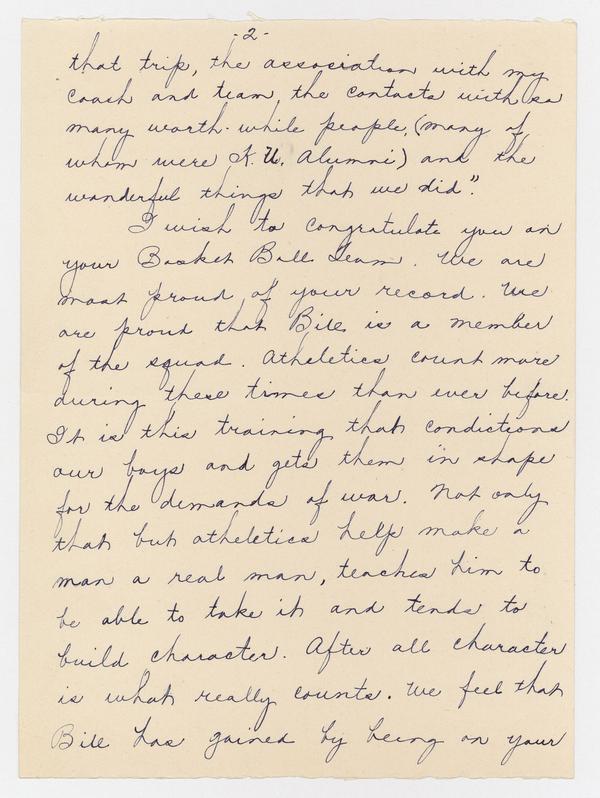 -2-
that trip, the association with my
coach and team, the contacts with so
many worth-while people, (many of
whom were K.U. Alumni) and the
wonderful things that we did".
I wish to congratulate you on
your Basket Ball Team. We are
most proud of your record. We
are proud that Bill is a member
of the squad. Atheletics count more
during these times than ever before.
It is this training that condictions
our boys and gets them in shape
for the demands of war. Not only
that but atheletics help make a
man a real man, teaches him to
be able to take it and tends to
build character. After all character
is what really counts. We feel that
Bill has gained by being on your